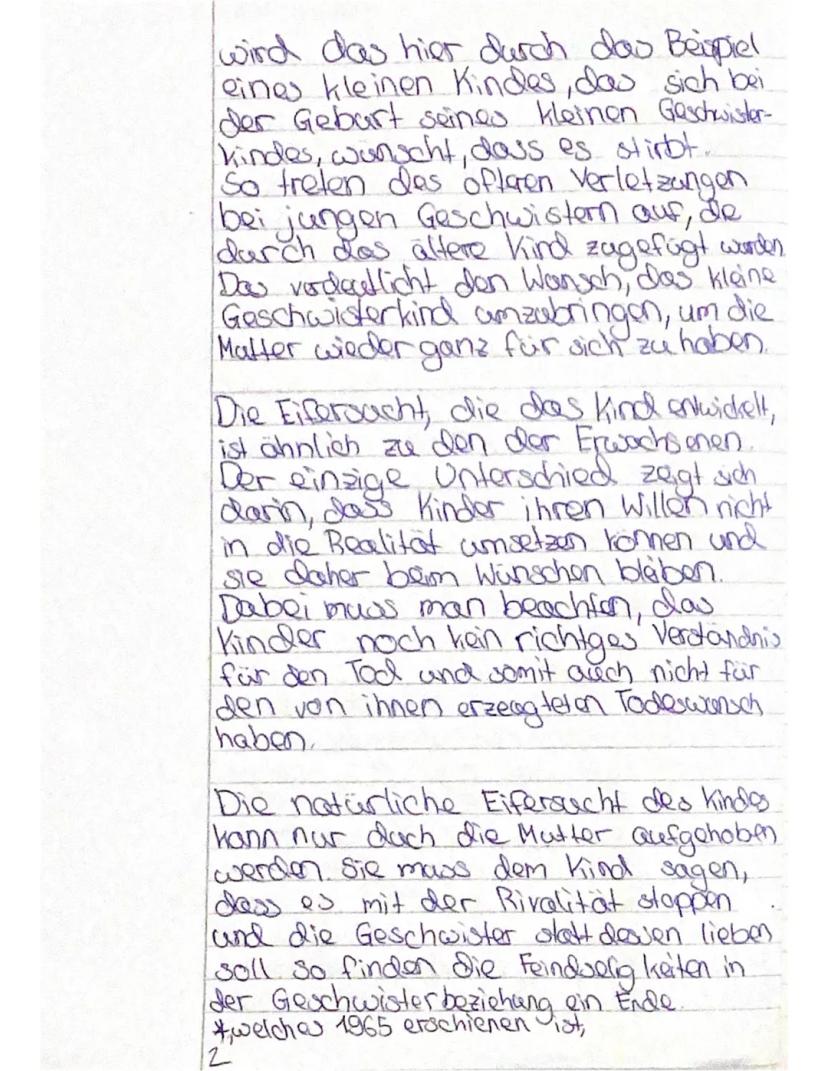 wird das hier durch das Beispiel
eines kleinen Kindes, das sich bei
der Geburt seines kleinen Geschwister-
kindes, wünscht, dass es stirbt.
So treten des öfteren Verletzungen
bei jungen Geschwistern auf, die
durch das ältere Kind zugefügt werden.
Das verdeutlicht den Wunsch, das kleine
Geschwisterkind umzubringen, um die
Mutter wieder ganz für sich zu haben.
Die Eifersucht, die das Kind entwickelt,
ist ähnlich zu den der Erwachsenen.
Der einzige Unterschied zeigt sich
darin, dass Kinder ihren Willen nicht
in die Realität umsetzen können und
sie daher beim Wünschen bleiben.
Dabei muss man beachten, das
Kinder noch kein richtges Verständnis
für den Tod und somit auch nicht für
den von ihnen erzeugteten Todeswunsch
haben.
Die natürliche Eifersucht des Kindes
kann nur duch die Mutter aufgehoben
werden. Sie muss dem Kind sagen,
dass es mit der Rivalität stoppen
und die Geschwister statt dessen lieben
soll. So finden die Feindseligkeiten in
der Geschwisterbeziehung ein Ende.
*,welches 1965 erschienen ist,
2